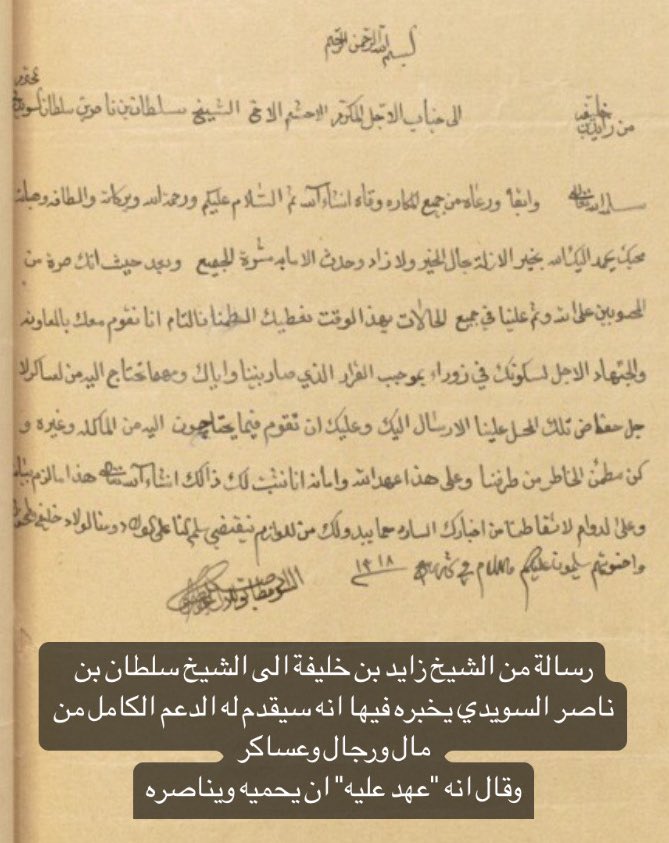 بسم الله الرحمن الرحيم
من زايد بن خليفه
الى جناب الاجل المكرم الاحشم الاخ الشيخ سلطان بن ناصر بن سلطان السويدي
سلمه الله تعالى وابقاه ورعاه من جميع المكاره وقاه انشاء الله ثم السلام عليكم ورحمة الله وبركاته والطافه وصلاته
محبك يحمد اليك الله بخير الازلة بحال الخير ولا زاد وحدث الا ما به مسرة للجميع وبعد حيث انك صرة من
المحسوبين على الله وثم علينا في جميع الحالات بهذا الوقت نعطيك بالتام انا نقوم معك بالمعاونه
والاجتهاد الاجل لسكونك في زوراء بموجب القرار الذي صار بيننا واياك ومهما تحتاج اليه من لساكر لا
جل حفاض تلك المحل علينا الارسال اليك وعليك ان تقوم فيما يحتاجون اليه من الماكله وغيره و
كن مطمئن الخاطر من طرفنا وعلى هذا عهد الله وامانه اننا نثبت لك ذالك انشاء الله تعالى هذا ما لزم
وعلى الدوام لا تقاطنا من اخبارك الساره مما يبدو لك من اللوازم يقتضي ومنا الاولاد خليفه
واخوتهم يسلمون عليكم والسلام في ١٣١٨
رسالة من الشيخ زايد بن خليفة الى الشيخ سلطان بن
ناصر السويدي يخبره فيها انه سيقدم له الدعم الكامل من
مال ورجال وعساكر
وقال انه "عهد عليه" ان يحميه ويناصره